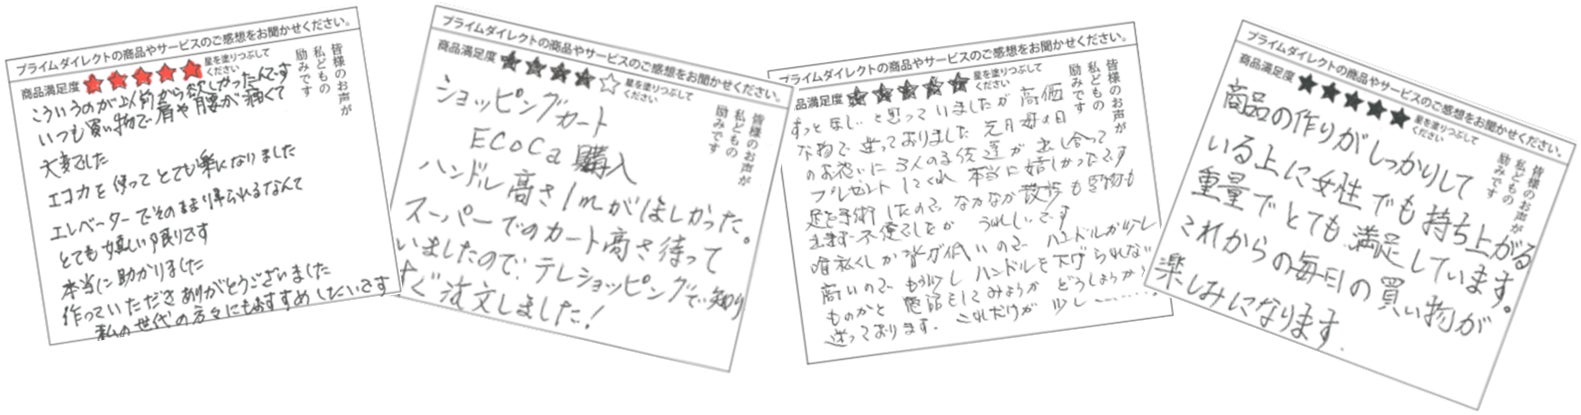 プライムダイレクトの商品やサービスのご感想をお聞かせください。
商品満足度 ★★★★★ 星を塗りつぶしてください
皆様のお声が
私どもの
励みです
こういうのが以前から欲しかったんです
いつも買い物で肩や腰が痛くて
大変でした
エコカを使ってとても楽になりました
エレベーターでそのまま帰られるなんて
とても嬉しい限りです
本当に助かりました
作っていただきありがとうございました
私の世代の方々にもおすすめしたいです
プライムダイレクトの商品やサービスのご感想をお聞かせください。
商品満足度 ★★★★☆ 星を塗りつぶしてください
皆様のお声が
私どもの
励みです
ショッピングカート
ECOCa 購入
ハンドル高さ1mがほしかった。
スーパーでのカート高さ待って
いましたので、テレショッピングで知り
すぐ注文しました!
プライムダイレクトの商品やサービスのご感想をお聞かせください。
商品満足度 ★★★★★ 星を塗りつぶしてください
皆様のお声が
私どもの
励みです
ずっとほしいと思っていましたが高価
な物で迷っておりました 先月母の日
のお祝いに3人の子供達が出し合って
プレゼントしてくれ本当に嬉しかったです
足を手術したのでなかなか散歩も買物も
まだ不便でしたが うれしいです
唯私くしが背が低いので ハンドルが少し
高いので もう少しハンドルを下げられない
ものかと 電話をしてみようか どうしようか?
迷っております。これだけが 少し……。
プライムダイレクトの商品やサービスのご感想をお聞かせください。
商品満足度 ★★★★★ 星を塗りつぶしてください
皆様のお声が
私どもの
励みです
商品の作りがしっかりして
いる上に女性でも持ち上がる
重量でとても満足しています。
これからの毎日の買い物が
楽しみになります。